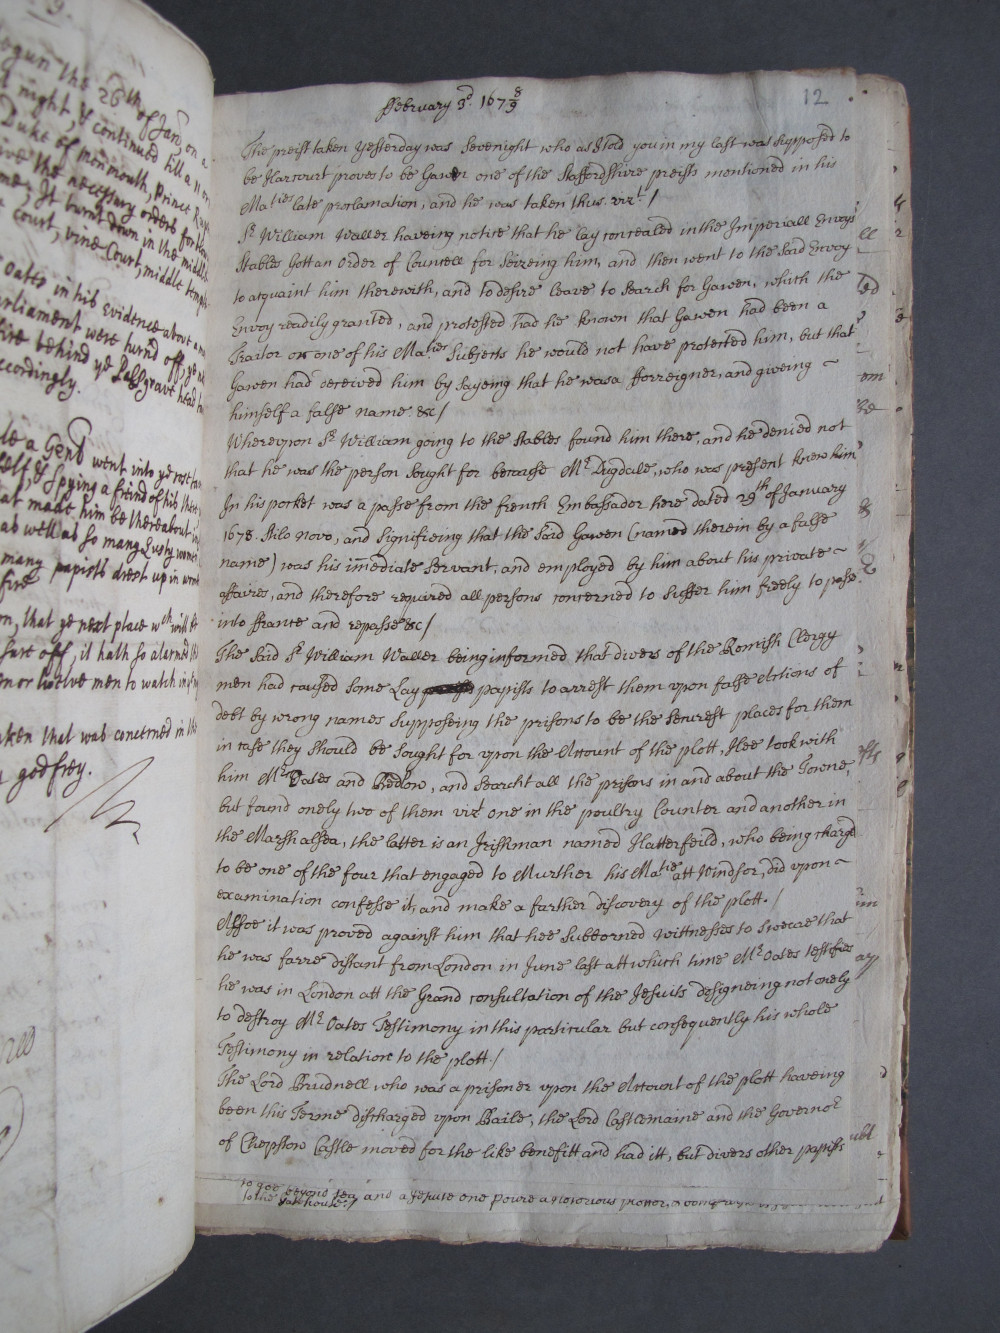 9.
egun the 26th of Jan on a
night, & continued till 11 on
Duke of monmouth, Prince Rup
ive the necessary orders for
mer, It burnt down in the middle
court, vine Court, middle temple
Oates in his Evidence about a
arliament were turn'd off, ye
fire behind ye Pallsgrave head
ccordingly.
a Gent went into ye
self, & Spying a freind of his there
at made him be thereabout
as well as so many Lusty women
many papists drest up in
fire
n, that ye next place wch will be
farr off, it hath so alarmed
or twelve men to watch in
aken that was concerned in the
godfrey.
ffebruary 3d. 167 8/9
12
The preist taken yesterday was Sevenight who as I told you in my last was Supposed to
be Harcourt proves to be Gawen one of the Staffordshire preists mentioned in his
Maties late proclamation, and he was taken thus. vizt. /
Sr. William Waller haveing notice that he lay concealed in the Imperiall Envoys
Stables Gott an Order of Councell for Seizeing him, and then went to the Said Envoy
to acquaint him therewith, and to desire leave to Search for Gawen, which the
Envoy readily granted, and protested had he known that Gawen had been a
Traitor or one of his Maties Subjects he would not have protected him, but that
Gawen had deceived him by Sayeing that he was a fforreigner, and giveing ~
himself a false name &c /
Whereupon Sr. William going to the Stables found him there, and he denied not
that he was the person Sought for because Mr. Dugdale, who was present knew him
In his pocket was a passe from the french Embassador here dated 29th of January
1678. Stilo novo, and Signifieing that the Said Gawen (named therein by a false
name) was his imediate Servant, and employed by him about his private ~
affaires, and therefore required all persons concerned to Suffer him freely to passe
into ffrance and repasse &c /
The Said Sr. William Waller being informed that divers of the Romish Clergy
men had caused Some Lay papists to arrest them upon false Actions of
debt by wrong names Supposeing the prisons to be the Securest places for them
in case they Should be Sought for upon the Account of the plott, Hee took with
him Mr. Oates and Bedlow, and Searcht all the prisons in and about the Towne,
but found onely two of them vizt. one in the poultry Counter and another in
the Marshalsea, the latter is an Irishman named Hatterfeild, who being charged
to be one of the four that engaged to Murther his Matie att Windsor, did upon ~
examination confesse it, and make a further discovery of the plott. /
Allsoe it was proved against him that hee Suborned Wittnesses to Sweare that
he was farre distant from London in June last att which time Mr. Oates testifies
he was in London att the Grand consultation of the Jesuits designeing not onely
to destroy Mr. Oates Testimony in this particular but consequently his whole
Testimony in relation to the plott. /
The Lord Brudnell who was a prisoner upon the Account of the plott haveing
been this Terme discharged upon Baile, the Lord Castlemaine and the Governor
of Chepstow Castle moved for the like benefitt and had itt, but divers other papists
to goe beyond Sea, and a Jesuite one
to the Gatehouse. /